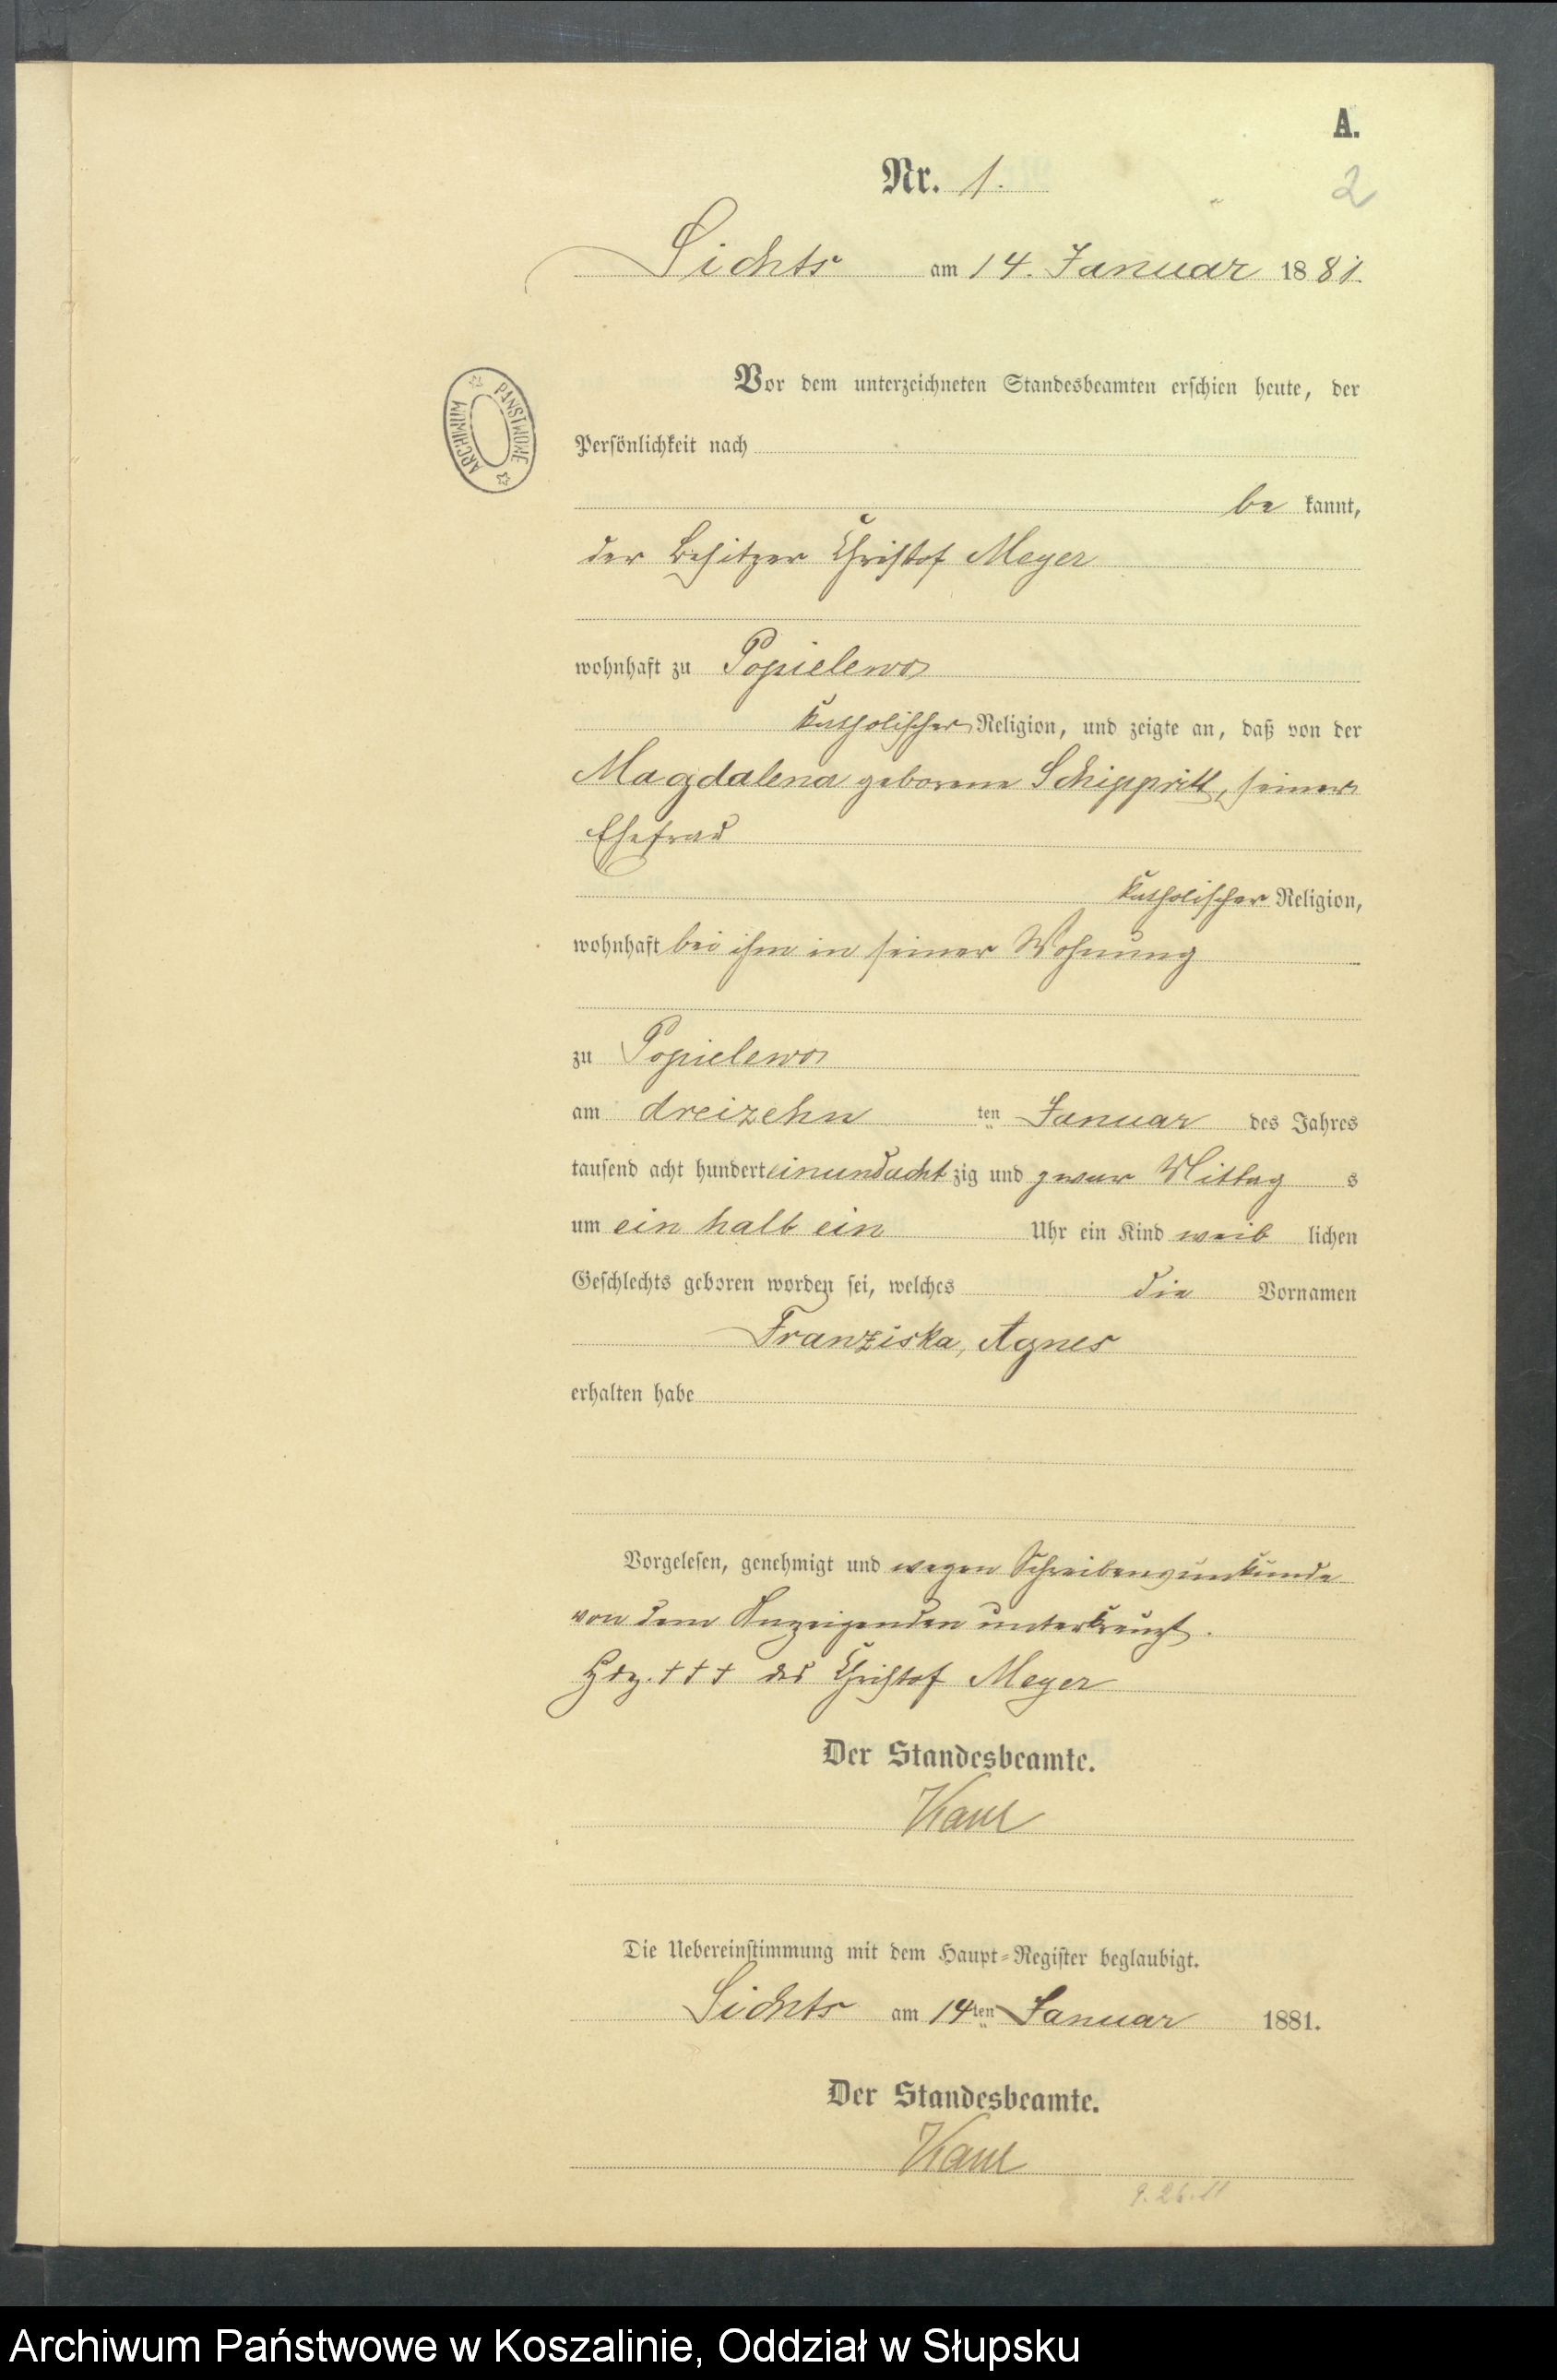 A.
Nr. 1.
2
Lichts am 14. Januar 1881.
ARCHIWUM PAŃSTWOWE
Vor dem unterzeichneten Standesbeamten erschien heute, der
Persönlichkeit nach
be kannt,
der Besitzer Christof Meyer
wohnhaft zu Popielewo
katholischer Religion, und zeigte an, daß von der
Magdalena geborene Schippritt, seiner
Ehefrau
katholischer Religion,
wohnhaft bei ihm in seiner Wohnung
zu Popielewo
am dreizehn ten Januar des Jahres
tausend acht hundert einundacht zig und zwar Mittag s
um ein halb ein Uhr ein Kind weib lichen
Geschlechts geboren worden sei, welches die Vornamen
Franziska, Agnes
erhalten habe
Vorgelesen, genehmigt und wegen Schreibensunkunde
von dem Anzeigenden unterkreuzt.
Hdz. +++ des Christof Meyer
Der Standesbeamte.
Die Uebereinstimmung mit dem Haupt-Register beglaubigt.
Lichts am 14ten Januar 1881.
Der Standesbeamte.
Archiwum Państwowe w Koszalinie, Oddział w Słupsku